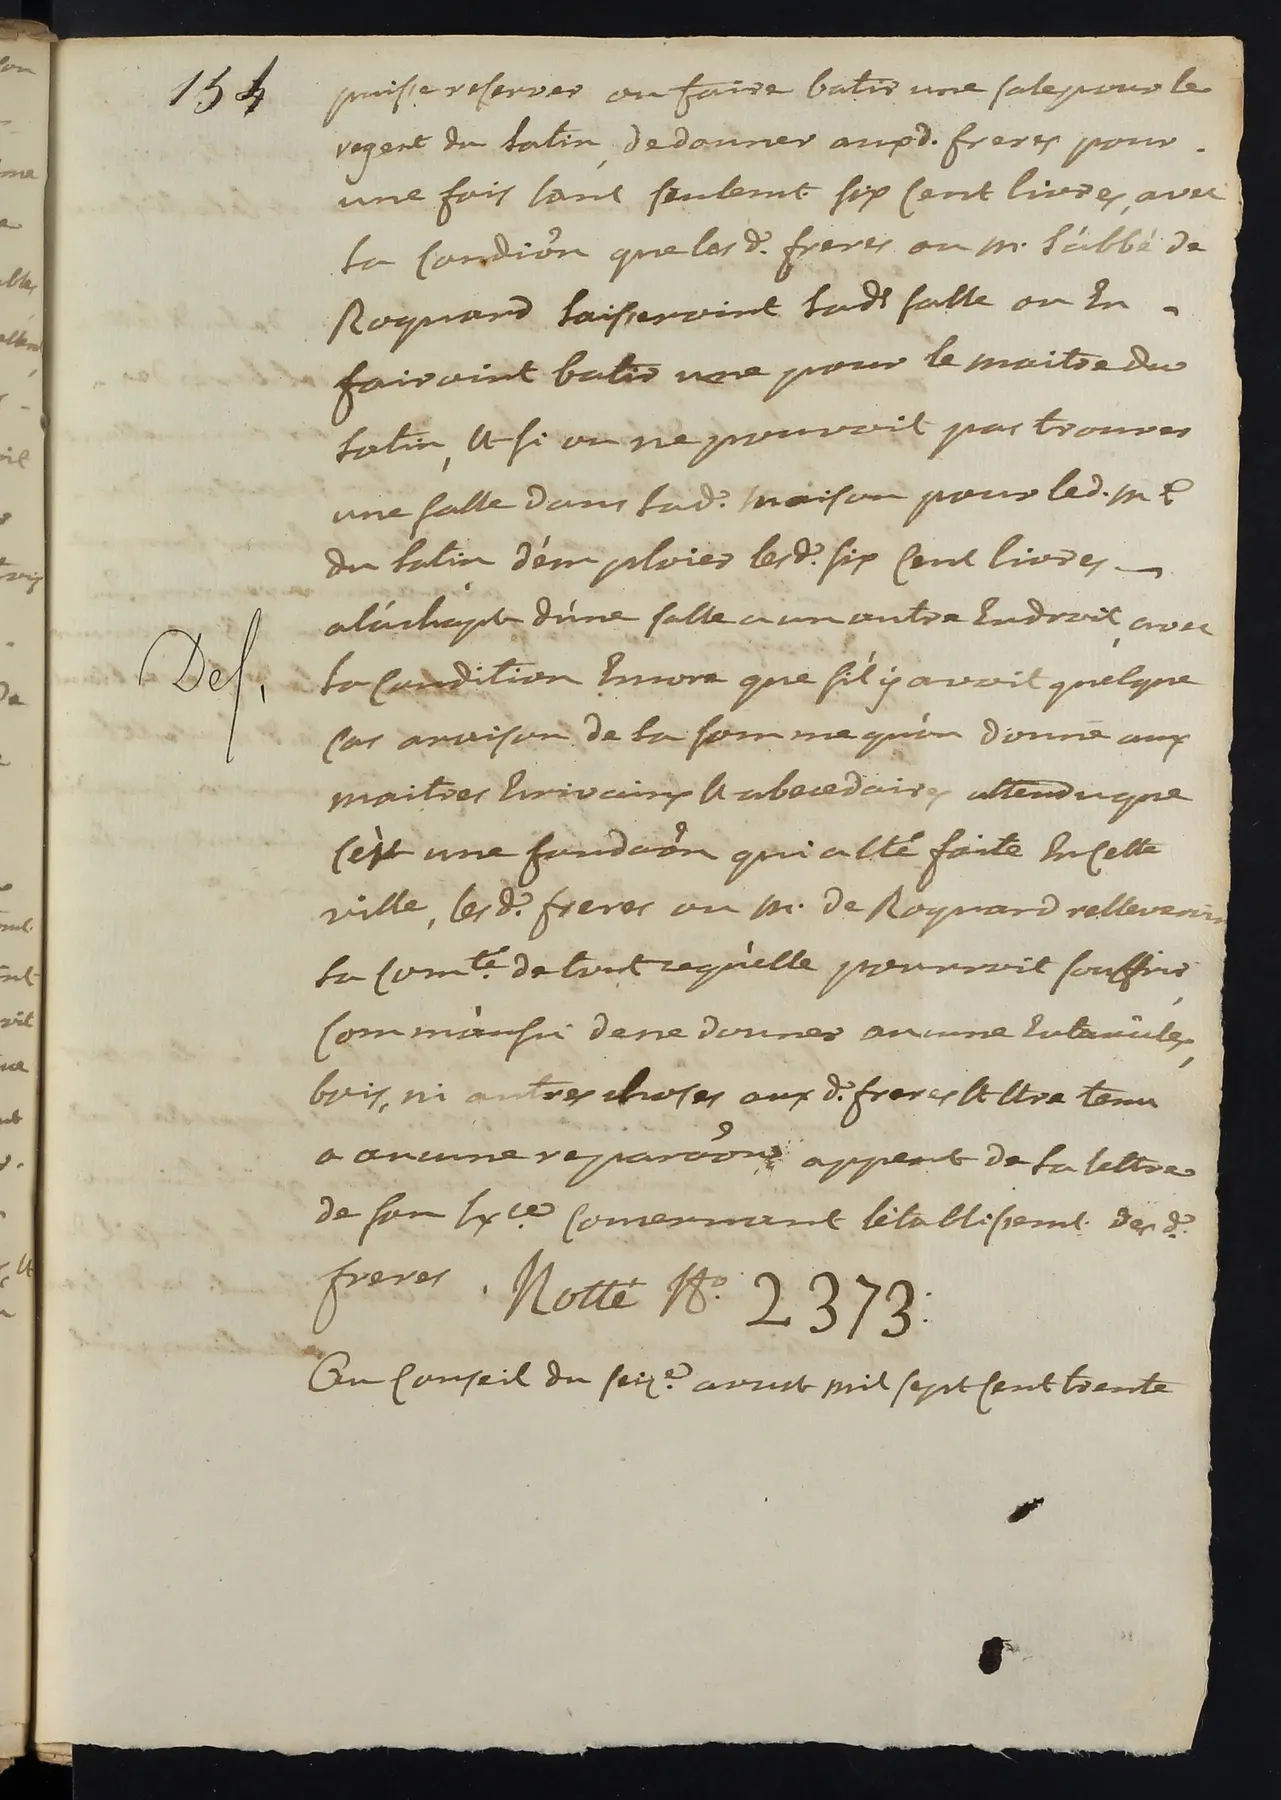 154
puisse reserver ou faire batir une sale pour le
regent du latin, de donner auxd. freres pour
une fois tant seulemt. six cent livres, avec
la condiôn que lesd. freres ou mr. l'abbé de
Roquard laisseroint lad. salle ou En
fairoint batir une pour le maitre du
latin, Et si on ne pouvoit pas trouver
une salle dans lad. maison pour led. me
du latin d'émploier lesd. six cent livres
a l'achept d'une salle a un autre Endroit, avec
Del.
la condition Encore que s'il y avoit quelque
cas a raison de la somme qu'on donne aux
maitres Ecrivains Et abecedaires attendu que
c'est une fondaôn qui a Eté faite En cette
ville, lesd. freres ou mr. de Roquard releveroint
la comté. de tout ce qu'elle pourroit souffrir,
comm'aussi de ne donner aucune Entanciles,
bois, ni autres choses aux d. freres Et Etre tenu
a aucune reparaôns appert de la lettre
de son Exce. concernant l'établissemt. des d.
freres. Notté No. 2373.
Au Conseil du seize. aoust mil sept cent trente